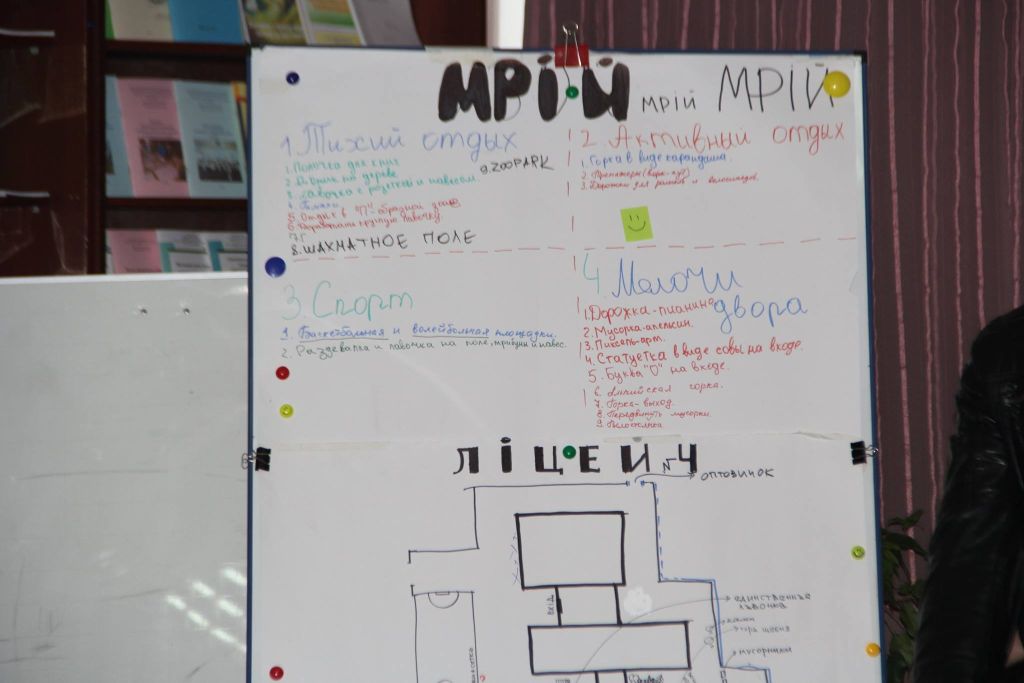 МРІЙ мрій МРІЙ
1. Тихий отдых
1. Полочка для книг
2. Домик на дереве
3. Лавочка с розеткой и навесом
5. Отдых в "П"-образной зоне
6. круглую лавочку.
7
8. ШАХМАТНОЕ ПОЛЕ
9. ZOOPARK
2. Активный отдых
1. Горка в виде карандаша.
2. Тренажеры
3. Дорожки для роликов и велосипедов.
3. Спорт
1. Баскетбольная и волейбольная площадки.
2. Раздевалка и лавочка на поле, трибуны и навес.
4. Мелочи двора
1. Дорожка-пианино
2. Мусорка-апельсин.
3. Пиксель-арт.
4. Статуетка в виде совы на входе.
5. Буква "О" на входе.
6. Альпийская горка.
7. Горка-выход.
8. Передвинуть мусорки.
9. Велостоянка
ЛІЦЕЙ №4
ОПТОВИНОК
ВХІД
единственная
лавочка
камни
гора щебня
мусорники